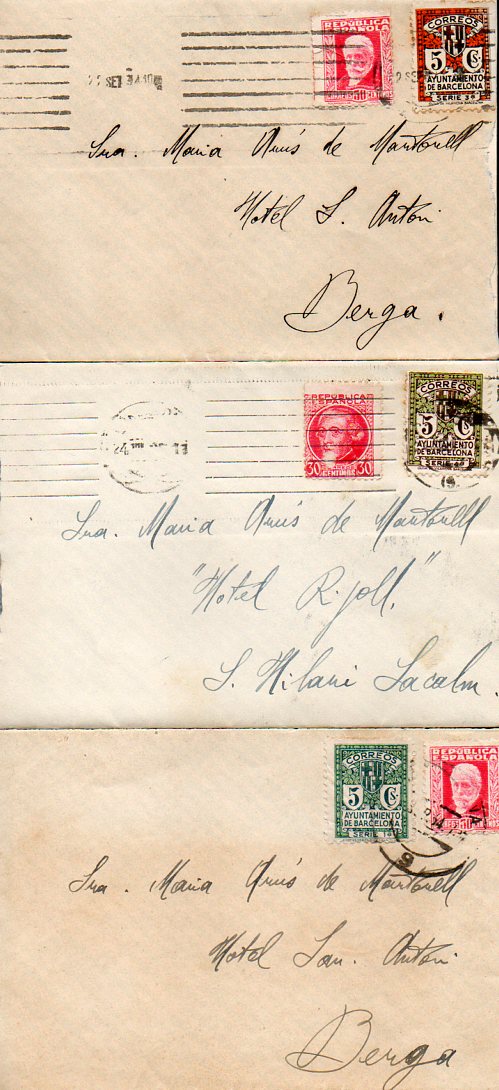 REPUBLICA
ESPAÑOLA
CORREOS
5 Cs.
AYUNTAMIENTO
DE BARCELONA
SERIE 3ª
SET
Sra. Maria Anús de Martorell
Hotel S. Antoni
Berga.
REPUBLICA
ESPAÑOLA
30 30
CENTIMOS
CORREOS
5 Cs.
AYUNTAMIENTO
DE BARCELONA
SERIE
Sra. Maria Anús de Martorell
"Hotel Ripoll"
S. Hilari Sacalm.
CORREOS
5 Cs.
AYUNTAMIENTO
DE BARCELONA
SERIE 1ª
REPUBLICA
ESPAÑOLA
Sra. Maria Anús de Martorell
Hotel San. Antoni
Berga